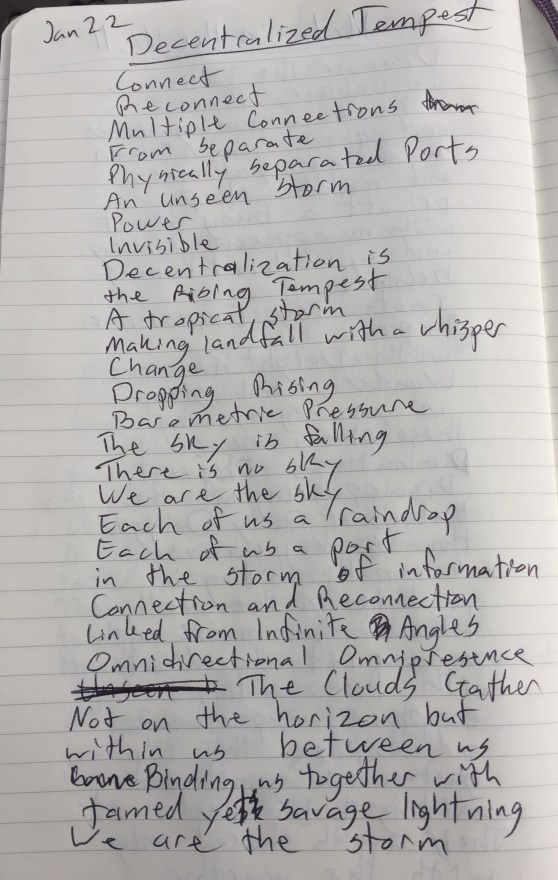 Jan 22
Decentralized Tempest
Connect
Reconnect
Multiple Connections
From Separate
Physically Separated Ports
An unseen Storm
Power
Invisible
Decentralization is
the Rising Tempest
A tropical storm
Making landfall with a whisper
Change
Dropping Rising
Barometric Pressure
The sky is falling
There is no sky
We are the sky
Each of us a raindrop
Each of us a port
in the storm of information
Connection and Reconnection
Linked from Infinite Angles
Omnidirectional Omnipresence
The Clouds Gather
Not on the horizon but
within us between us
Binding us together with
tamed yet savage lightning
We are the storm